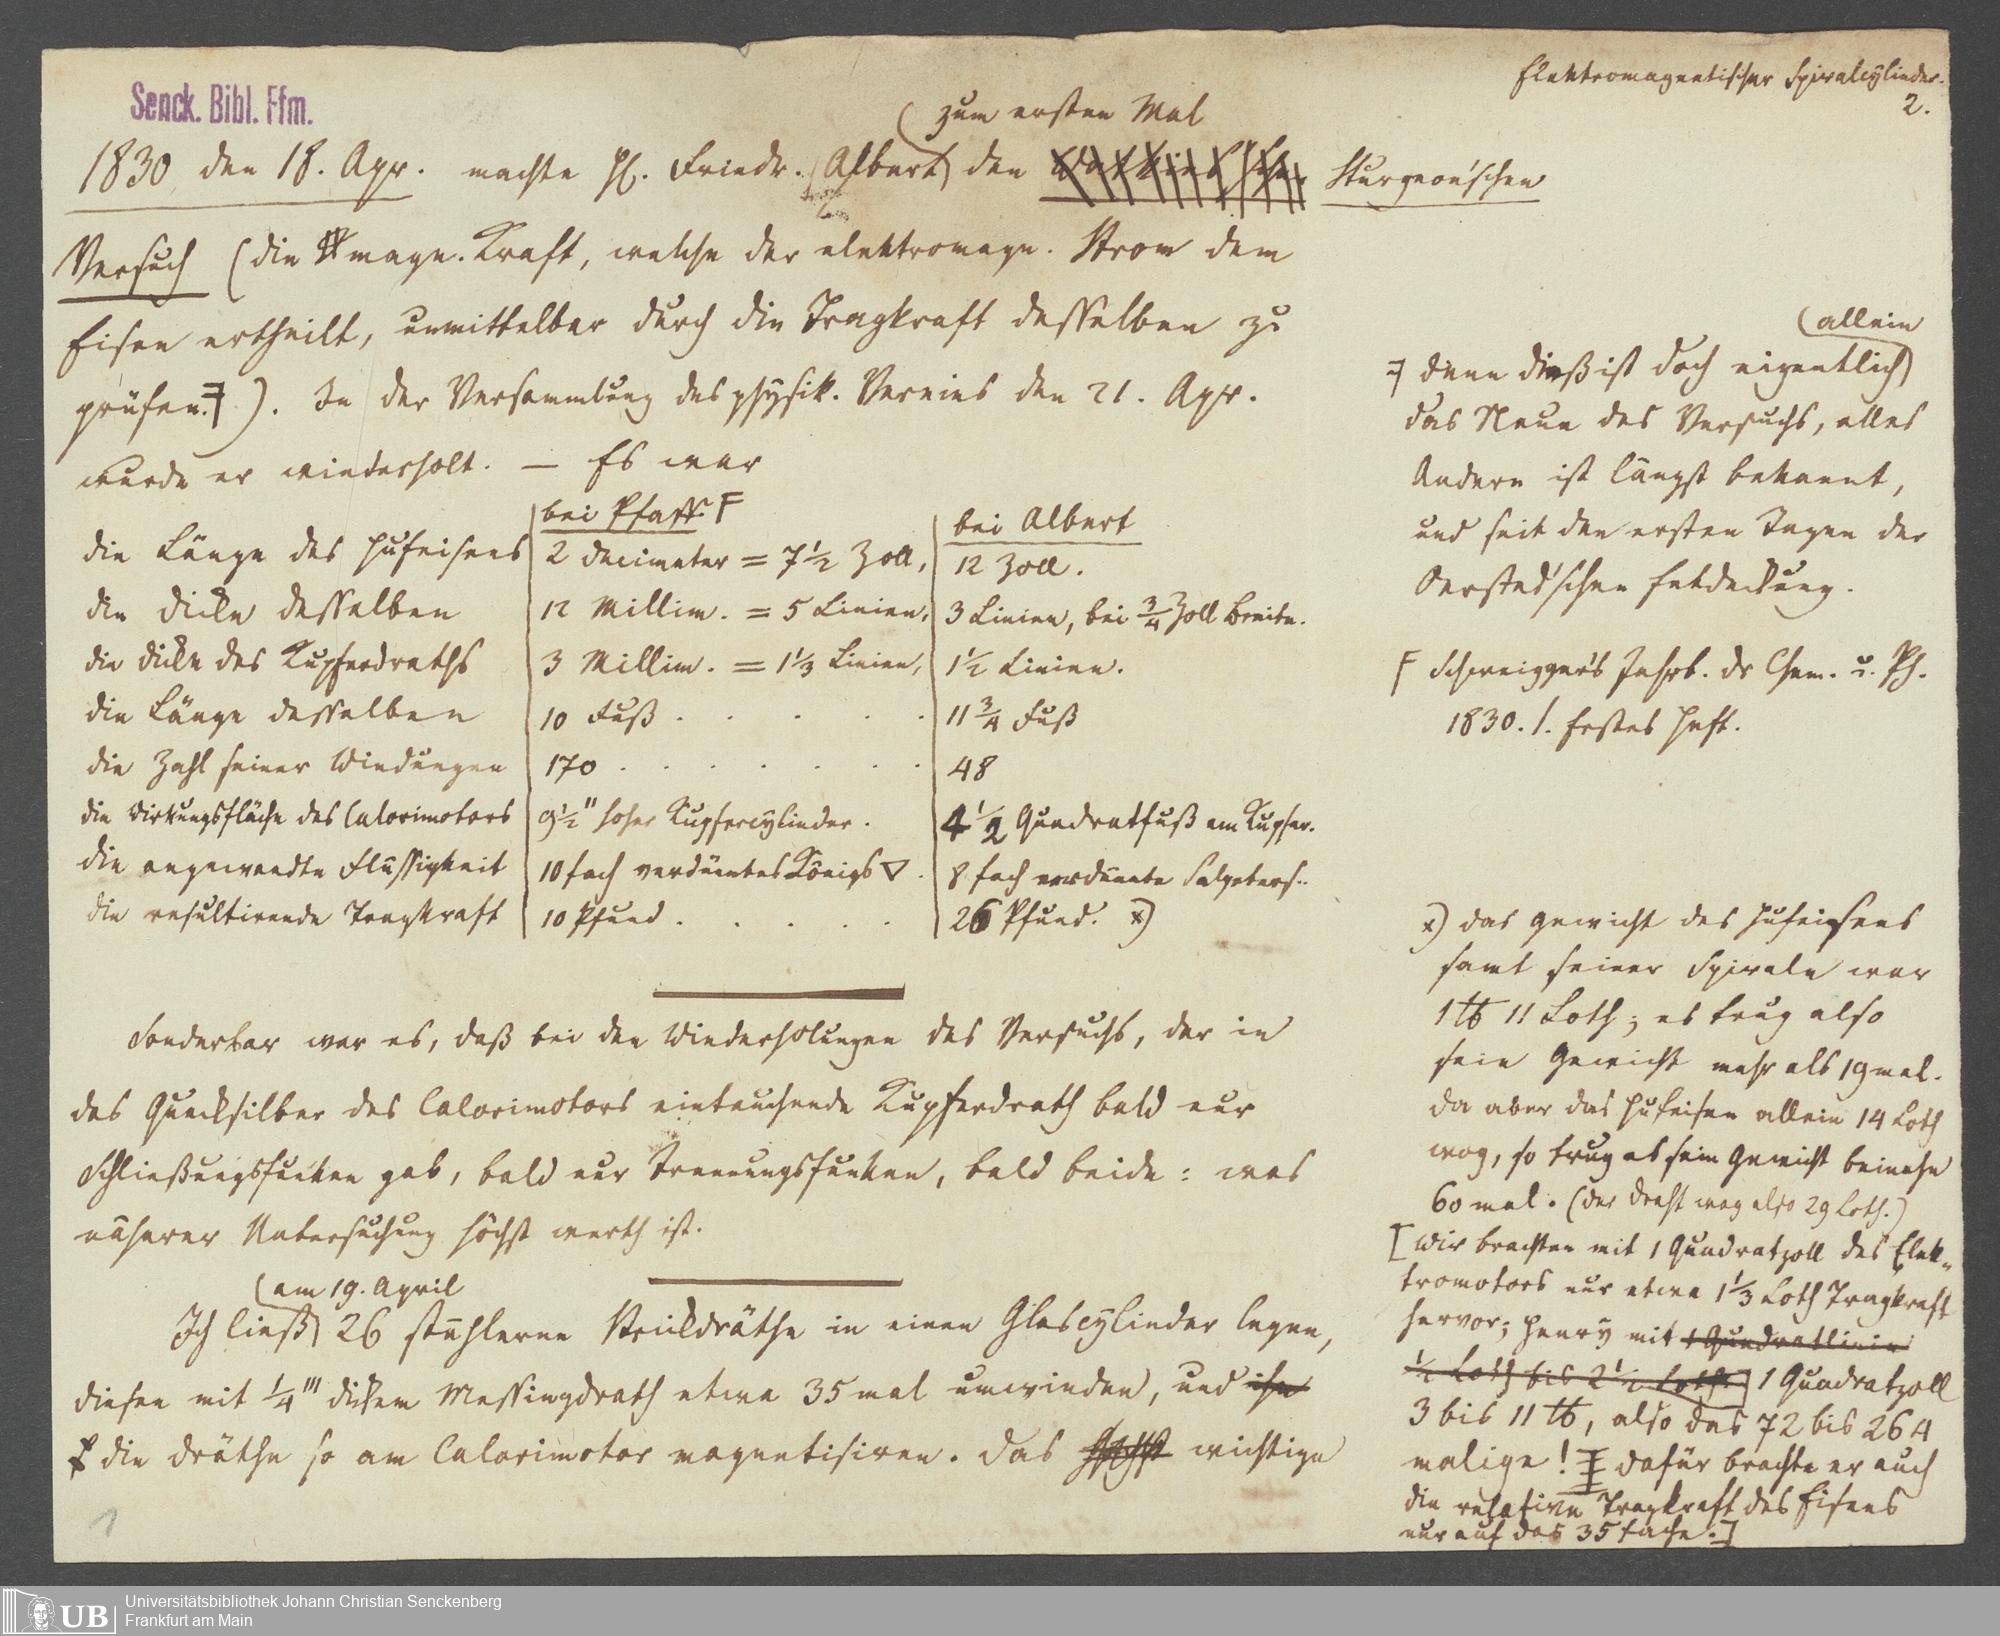 Elektromagnetischer Spiralcylinder.
2.
Senck. Bibl. Ffm.
zum ersten Mal
1830 den 18. Apr. machte H. Friedr. Albert den Sturgeon'schen
Versuch (die magn. Kraft, welche der elektromagn. Strom dem
Eisen ertheilt, unmittelbar durch die Tragkraft desselben zu
prüfen.). In der Versammlung des physik. Vereins den 21. Apr.
wurde er wiederholt. — Es war
bei Pfaff F
bei Albert
die Länge des Hufeisens 2 Decimeter = 7 1/2 Zoll, 12 Zoll.
die Dicke desselben 12 Millim. = 5 Linien, 3 Linien, bei 3/4 Zoll Breite.
die Dicke des Kupferdraths 3 Millim. = 1 1/3 Linien, 1 1/2 Linien.
die Länge desselben 10 Fuß . . . . . 11 3/4 Fuß
die Zahl seiner Windungen 170 . . . . . . . 48
die Wirkungsfläche des Calorimotors 9 1/2" hoher Kupfercylinder. 4 1/2 Quadratfuß am Kupfer.
die angewandte Flüssigkeit 10fach verdünntes Königs▽. 8fach verdünnte Salpeters..
die resultirende Tragkraft 10 Pfund . . . . . 26 Pfund. x)
Sonderbar war es, daß bei den Wiederholungen des Versuchs, der in
das Quecksilber des Calorimotors eintauchende Kupferdrath bald nur
Schließungsfunken gab, bald nur Trennungsfunken, bald beide: was
näherer Untersuchung höchst werth ist.
am 19. April
Ich ließ 26 stählerne Strickdräthe in einen Glascylinder legen,
diesen mit 1/4''' dickem Messingdrath etwa 35 mal umwinden, und ihn
die Dräthe so am Calorimotor magnetisiren. Das höchst wichtige
1
allein
denn dieß ist doch eigentlich
das Neue des Versuchs, alles
Andere ist längst bekannt,
und seit den ersten Tagen der
Oersted'schen Entdeckung.
F Schweigger's Jahrb. dr Chem. u. Ph.
1830. 1. Erstes Heft.
x) das Gewicht des Hufeisens
samt seiner Spirale war
1 ℔ 11 Loth; es trug also
sein Gewicht mehr als 19 mal.
Da aber das Hufeisen allein 14 Loth
wog, so trug es sein Gewicht beinahe
60 mal. (der Draht wog also 29 Loth.)
[Wir brachten mit 1 Quadratzoll des Elek-
tromotors nur etwa 1 1/3 Loth Tragkraft
hervor; Henry mit 1 Quadratlinie
1/2 Loth bis 2 1/2 Loth 1 Quadratzoll
3 bis 11 ℔, also das 72 bis 264
malige! Dafür brachte er auch
die relative Tragkraft des Eisens
nur auf das 35fache.]
UB
Universitätsbibliothek Johann Christian Senckenberg
Frankfurt am Main